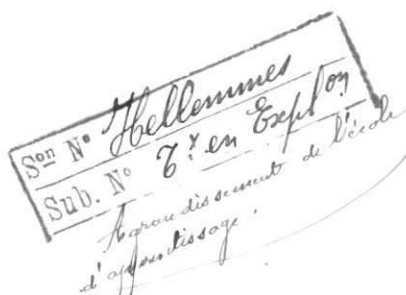 Son N° Hellemmes
Sub. N° Tx en Expl on
Agrandissement de l'école
d'apprentissage.